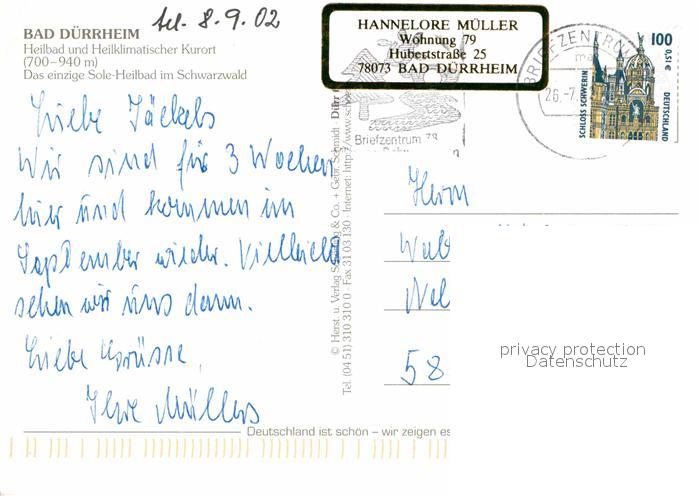 tel. 8.9.02
BAD DÜRRHEIM
Heilbad und Heilklimatischer Kurort
(700–940 m)
Das einzige Sole-Heilbad im Schwarzwald
HANNELORE MÜLLER
Wohnung 79
Hubertstraße 25
78073 BAD DÜRRHEIM
BRIEFZENTRUM
26.-7.
Briefzentrum 78
100
0,51€
SCHLOSS SCHWERIN
DEUTSCHLAND
Liebe Jäckels
Wir sind für 3 Wochen
hier und kommen im
September wieder. Vielleicht
sehen wir uns dann.
Liebe Grüsse
Ihre Müllers
© Herst. u. Verlag Schöning & Co. + Gebr. Schmidt
Tel. (04 51) 310 310 0 Fax 31 03 130 Internet: http://www.
Herrn
58
privacy protection
Datenschutz
Deutschland ist schön – wir zeigen es